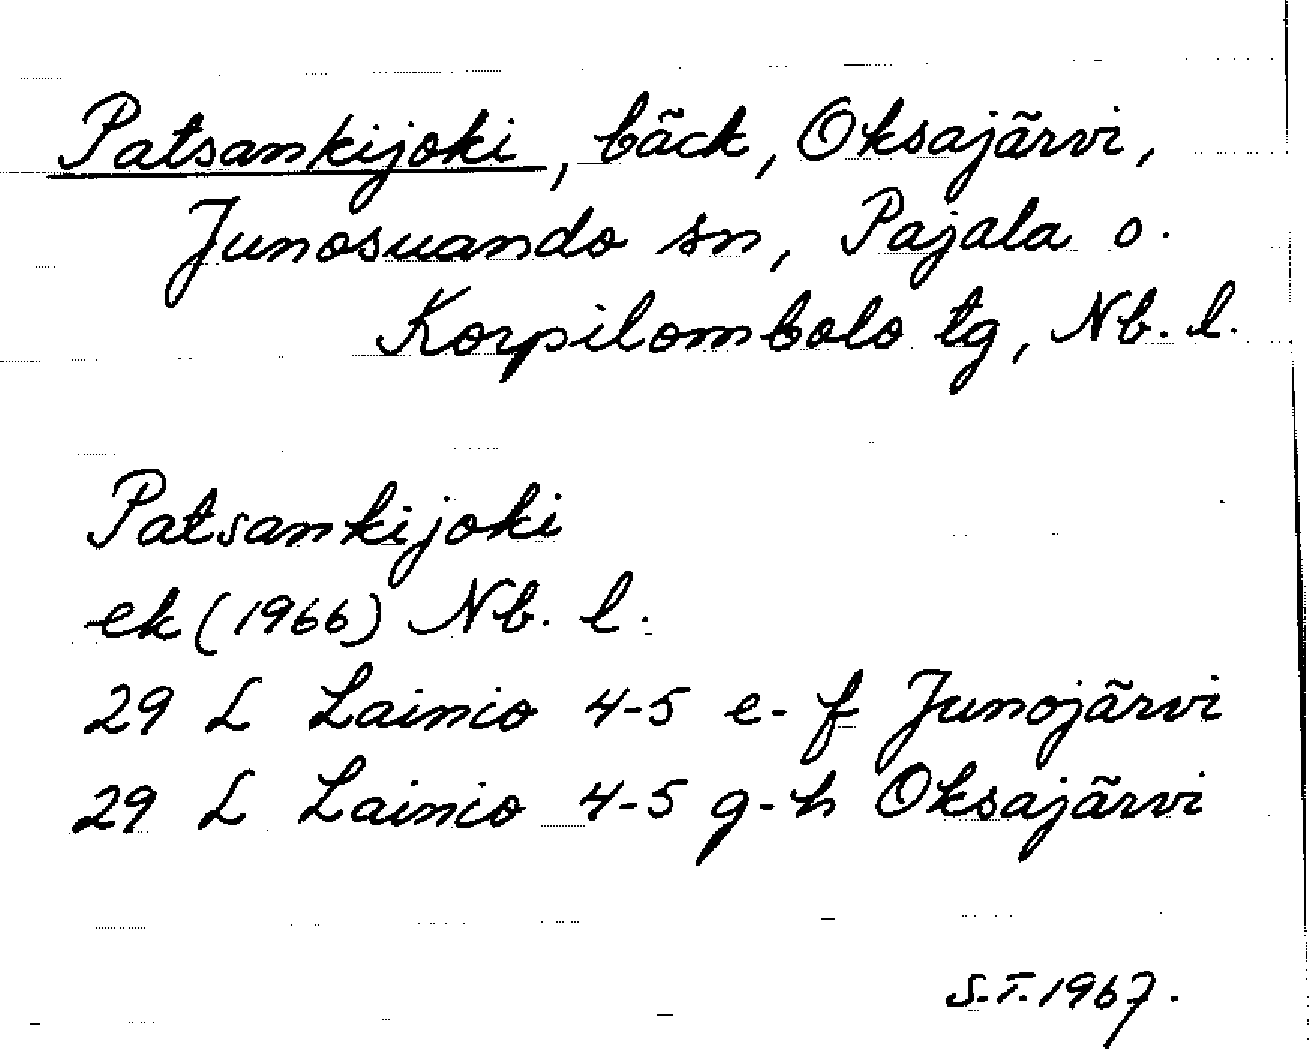 Patsankijoki, bäck, Oksajärvi,
Junosuando sn, Pajala o.
Korpilombolo tg, Nb. l.
Patsankijoki
ek (1966) Nb. l.
29 L Lainio 4-5 e-f Junojärvi
29 L Lainio 4-5 g-h Oksajärvi
S.T. 1967.